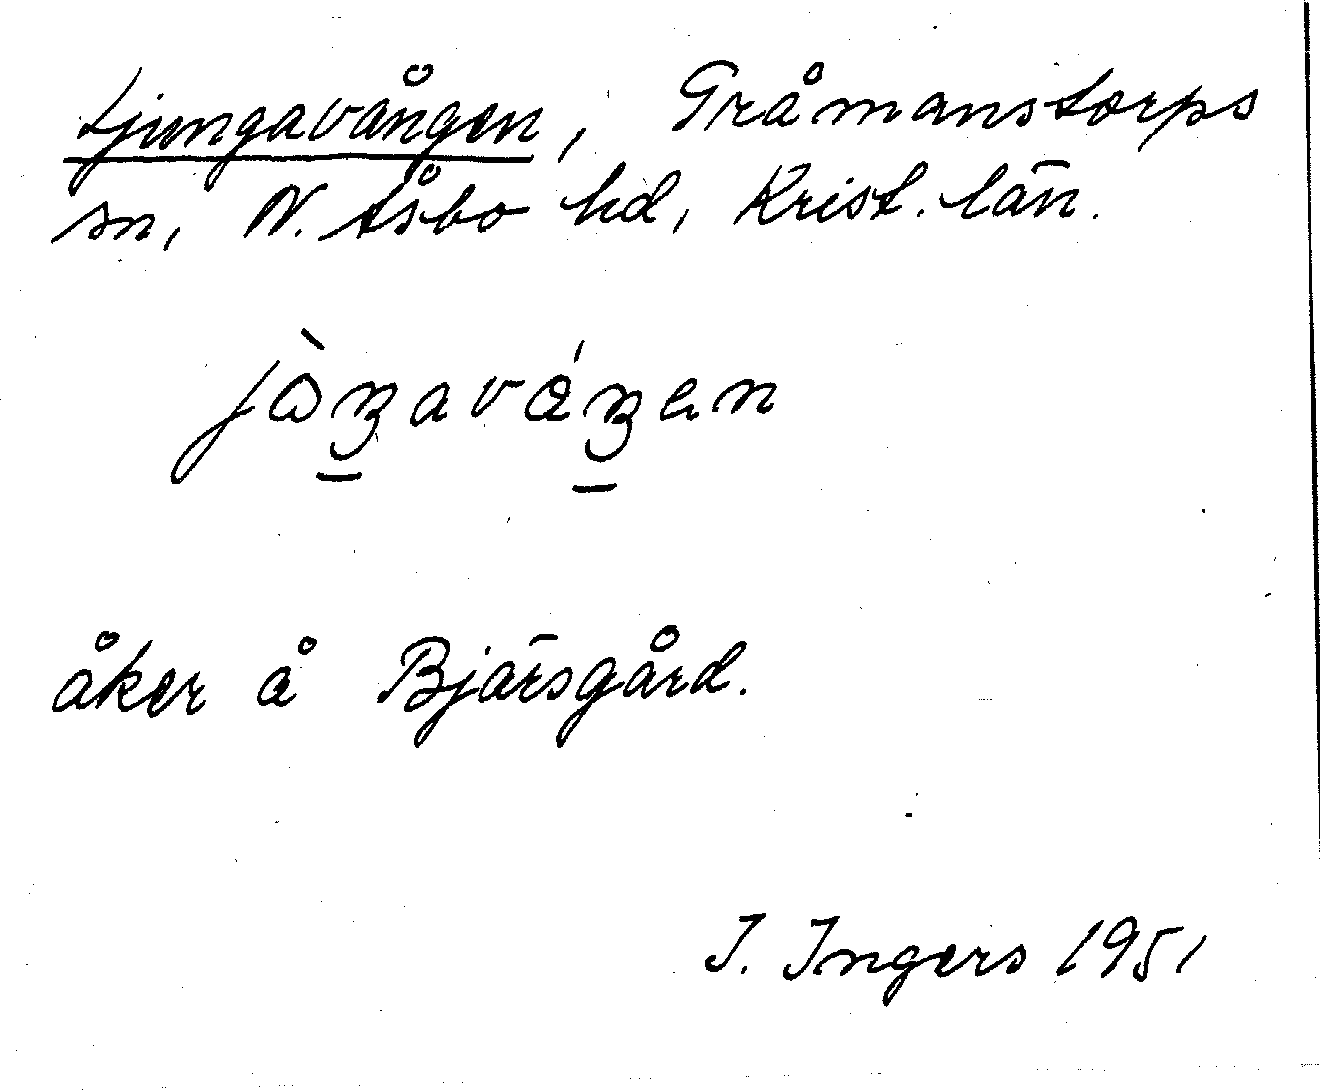 Ljungavången, Gråmanstorps
sn, N. Åsbo hd, Krist. län.
åker å Bjärsgård.
I. Ingers 1951